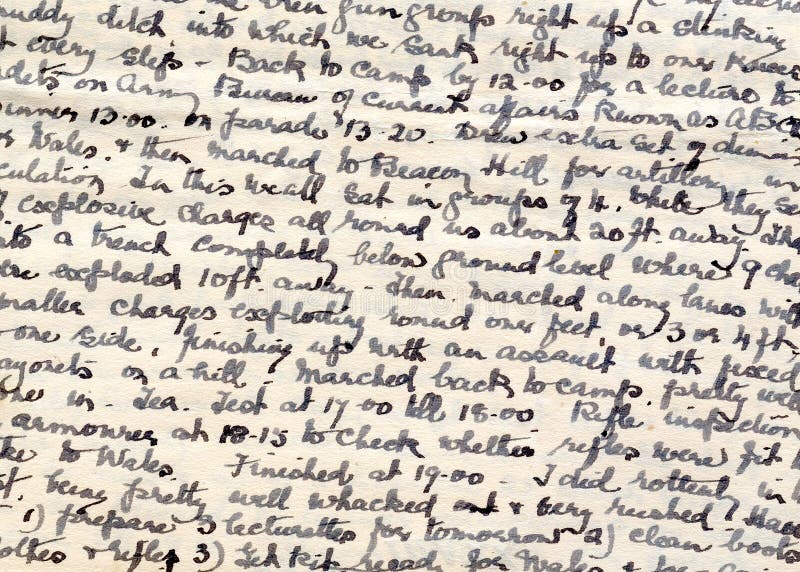 gun groups right up a stinking
muddy ditch into which we sank right up to our knees
at every step - Back to camp by 12-00 for a lecture to
cadets on Army Bureau of Current Affairs known as ABC
Dinner 13-00. on parade 13-20. Drew extra set of denims
Wales. & then marched to Beacon Hill for artillery
In this we all sat in groups of 4. while they
explosive charges all round us about 20 ft. away.
into a trench completely below ground level where 9
were exploded 10 ft. away - Then marched along lanes with
smaller charges exploding round our feet, or 3 or 4 ft.
one side, finishing up with an assault with fixed
bayonets on a hill. Marched back to camp. pretty
in - Tea. Test at 17 00 till 18-00 Rifle inspection
armourer at 18-15 to check whether rifles were fit
to Wales Finished at 19-00. I did rottenly in
being pretty well whacked & very rushed!
1) prepare 3 lecturettes for tomorrow 2) clean boots
& rifles 3) Get kit ready for Wales &